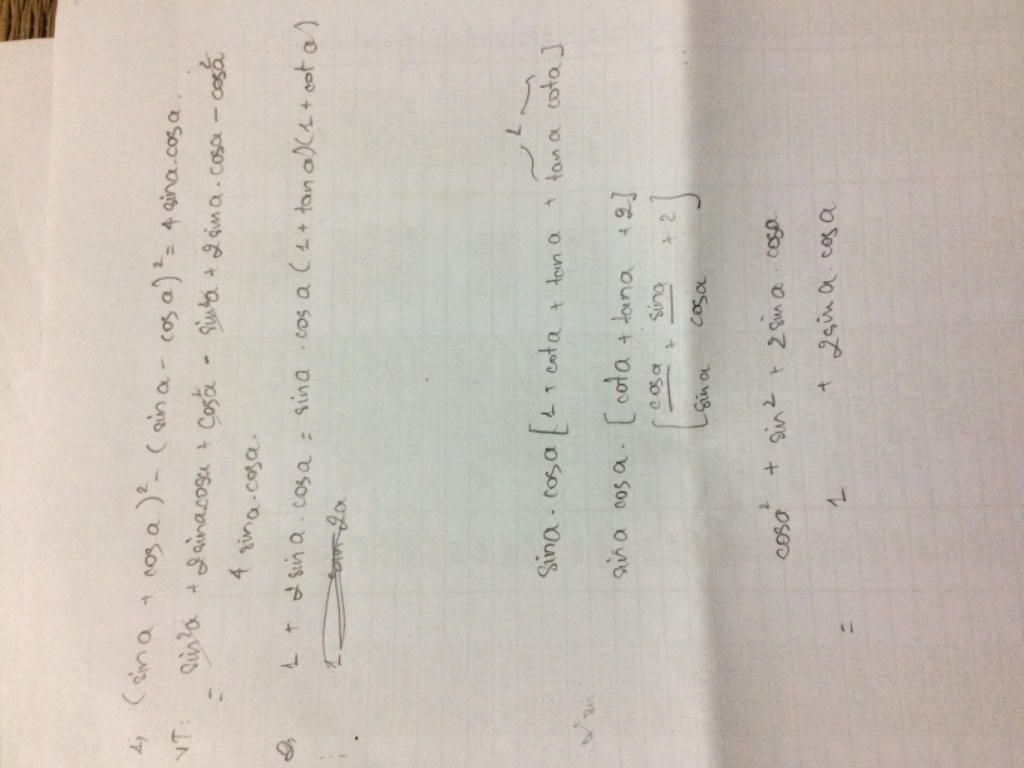 1, (sin a + cos a)² - (sin a - cos a)² = 4 sin a. cos a.
VT: sin²a + 2 sin a cos a + cos²a - sin²a + 2 sin a. cos a - cos²a
= 4 sin a. cos a.
2, 1 + 2 sin a. cos a = sin a. cos a (1 + tan a)(1 + cot a)
sin a. cos a [1 + cot a + tan a + tan a cot a]
1
sin a cos a. [cot a + tan a + 2]
[cos a / sin a + sin a / cos a + 2]
cos a² + sin² + 2 sin a. cos a
= 1 + 2 sin a cos a